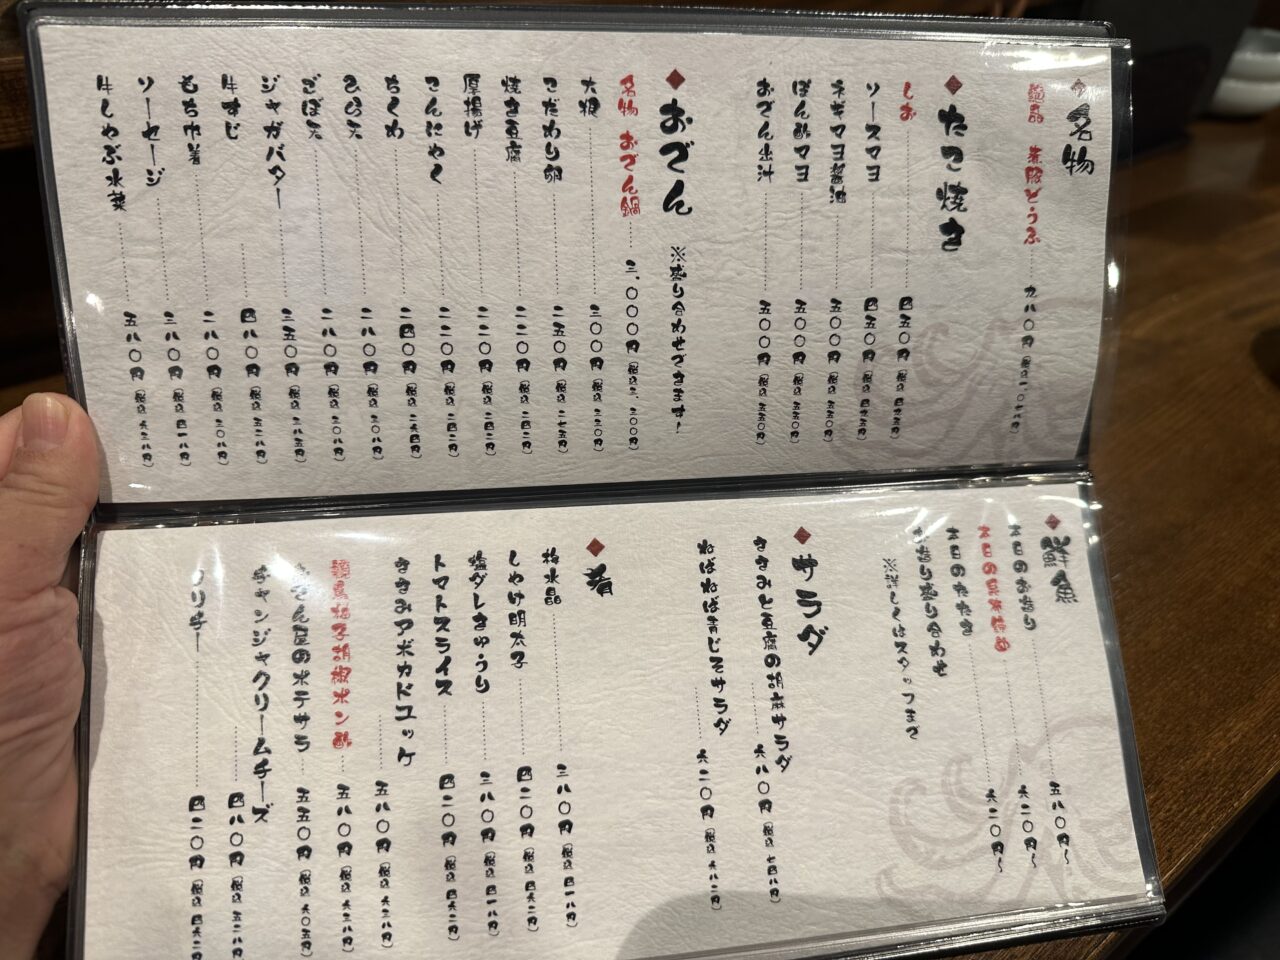 名物
絶品 煮豚どうふ 九八〇円(税込一、〇七八円)
たこ焼き
しお 四五〇円(税込 四九五円)
ソースマヨ 四五〇円(税込 四九五円)
ネギマヨ醤油 五〇〇円(税込 五五〇円)
ぽん酢マヨ 五〇〇円(税込 五五〇円)
おでん出汁 五〇〇円(税込 五五〇円)
おでん ※盛り合わせできます!
名物 おでん鍋 三、〇〇〇円(税込三、三〇〇円)
大根 二〇〇円(税込 二二〇円)
こだわり卵 二五〇円(税込 二七五円)
焼き豆腐 二二〇円(税込 二四二円)
厚揚げ 二二〇円(税込 二四二円)
こんにゃく 二二〇円(税込 二四二円)
ちくわ 二四〇円(税込 二六四円)
ひら天 二八〇円(税込 三〇八円)
ごぼ天 二八〇円(税込 三〇八円)
ジャガバター 三五〇円(税込 三八五円)
牛すじ 四八〇円(税込 五二八円)
もち巾着 二八〇円(税込 三〇八円)
ソーセージ 三八〇円(税込 四一八円)
牛しゃぶ水菜 五八〇円(税込 六三八円)
鮮魚
本日のお造り 五八〇円〜
本日の昆布締め 六二〇円〜
本日のたたき 六二〇円〜
お造り盛り合わせ
※詳しくはスタッフまで
サラダ
きざみと豆腐の胡麻サラダ 六八〇円(税込 七四八円)
ねばねば青じそサラダ 六二〇円(税込 六八二円)
肴
梅水晶 三八〇円(税込 四一八円)
しゃけ明太子 四二〇円(税込 四六二円)
塩ダレきゅうり 三八〇円(税込 四一八円)
トマトスライス 四二〇円(税込 四六二円)
きざみアボカドユッケ 五八〇円(税込 六三八円)
柚子胡椒ポン酢 五八〇円(税込 六三八円)
おでん屋のポテサラ 五五〇円(税込 六〇五円)
チャンジャクリームチーズ 四八〇円(税込 五二八円)
四二〇円(税込 四六二